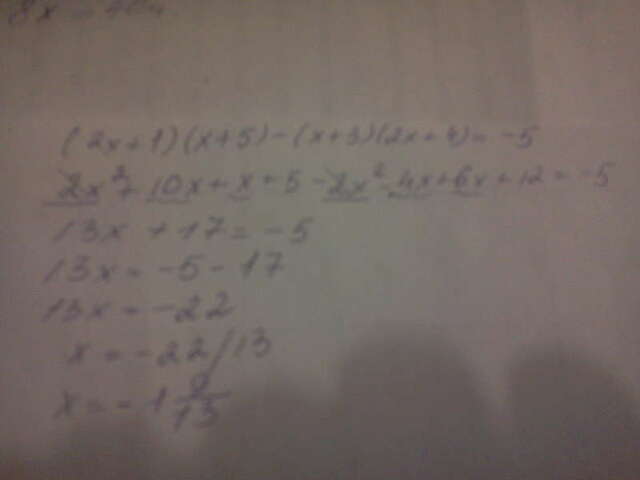 (2x+1)(x+5)-(x+3)(2x+4)=-5
2x²+10x+x+5-2x²-4x+6x+12=-5
13x+17=-5
13x=-5-17
13x=-22
x=-22/13
x=-1 9/13